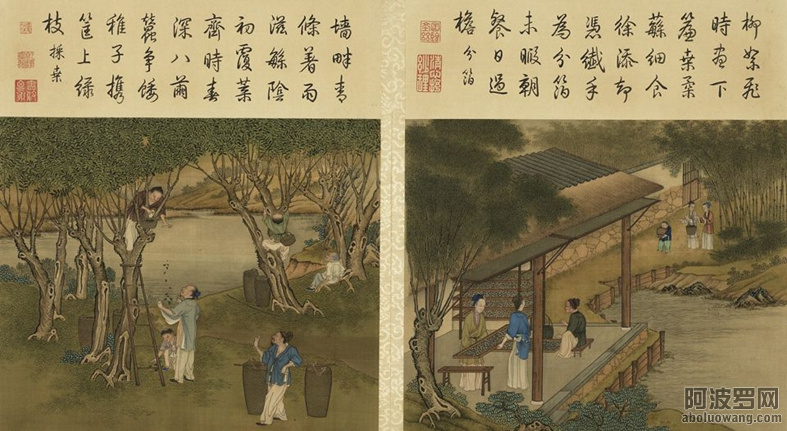 柳絮飛
時晝下
簾桑柔
蘇細食
徐添却
憑纖手
為分箔
未暇朝
餐日過
檐 分箔
墙畔青
條著雨
滋緐陰
初覆葉
齊時春
深八繭
蠶争餧
稚子攜
筐上綠
枝 採桑
阿波罗网
aboluowang.com